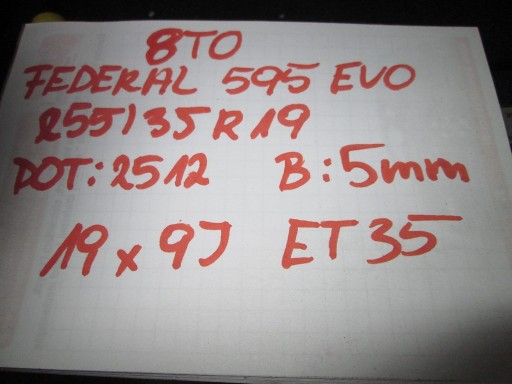 8TO
FEDERAL 595 EVO
255/35 R 19
DOT: 2512 B: 5mm
19 x 9J ET 35